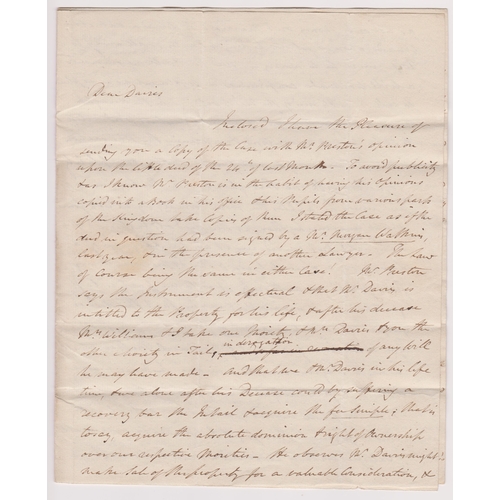 Dear Davies
Inclosed I have the Pleasure of
sending you a Copy of the Case with Mr. Preston's opinion
upon the little deed of the 24th of last Month. To avoid publicity
& as I know Mr. Preston is in the habit of having his Opinions
copied into a book in his office & his Pupils from various parts
of the Kingdom take Copies of them I stated the Case as if the
deed in question had been signed by a Mr. Morgan Watkins,
last year, & in the presence of another Lawyer. The Law
of Course being the same in either Case. Mr. Preston
says the Instrument is effectual & that Mr. Davis is
entitled to the Property for his life, & after his decease
Mrs. Williams & I take one Moiety & Mrs. Davies & you the
other Moiety in Tail, in derogation of any Will
he may have made - and that we & Mr. Davis in his life
time, & we alone after his Decease could by suffering a
recovery bar the Intail & acquire the fee simple, that is
to say, acquire the absolute dominion & right of Ownership
over our respective Moieties - He observes Mr. Davis might
make Sale of the property for a valuable Consideration, &